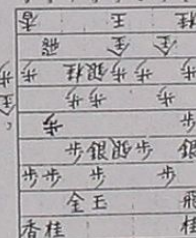 香 王 桂
飛 金 金
歩 桂 銀 歩 歩 歩 歩
歩 歩 歩 歩
歩 歩
歩 銀 銀 歩 銀
歩 歩 歩 歩
金 王 飛
香 桂 桂